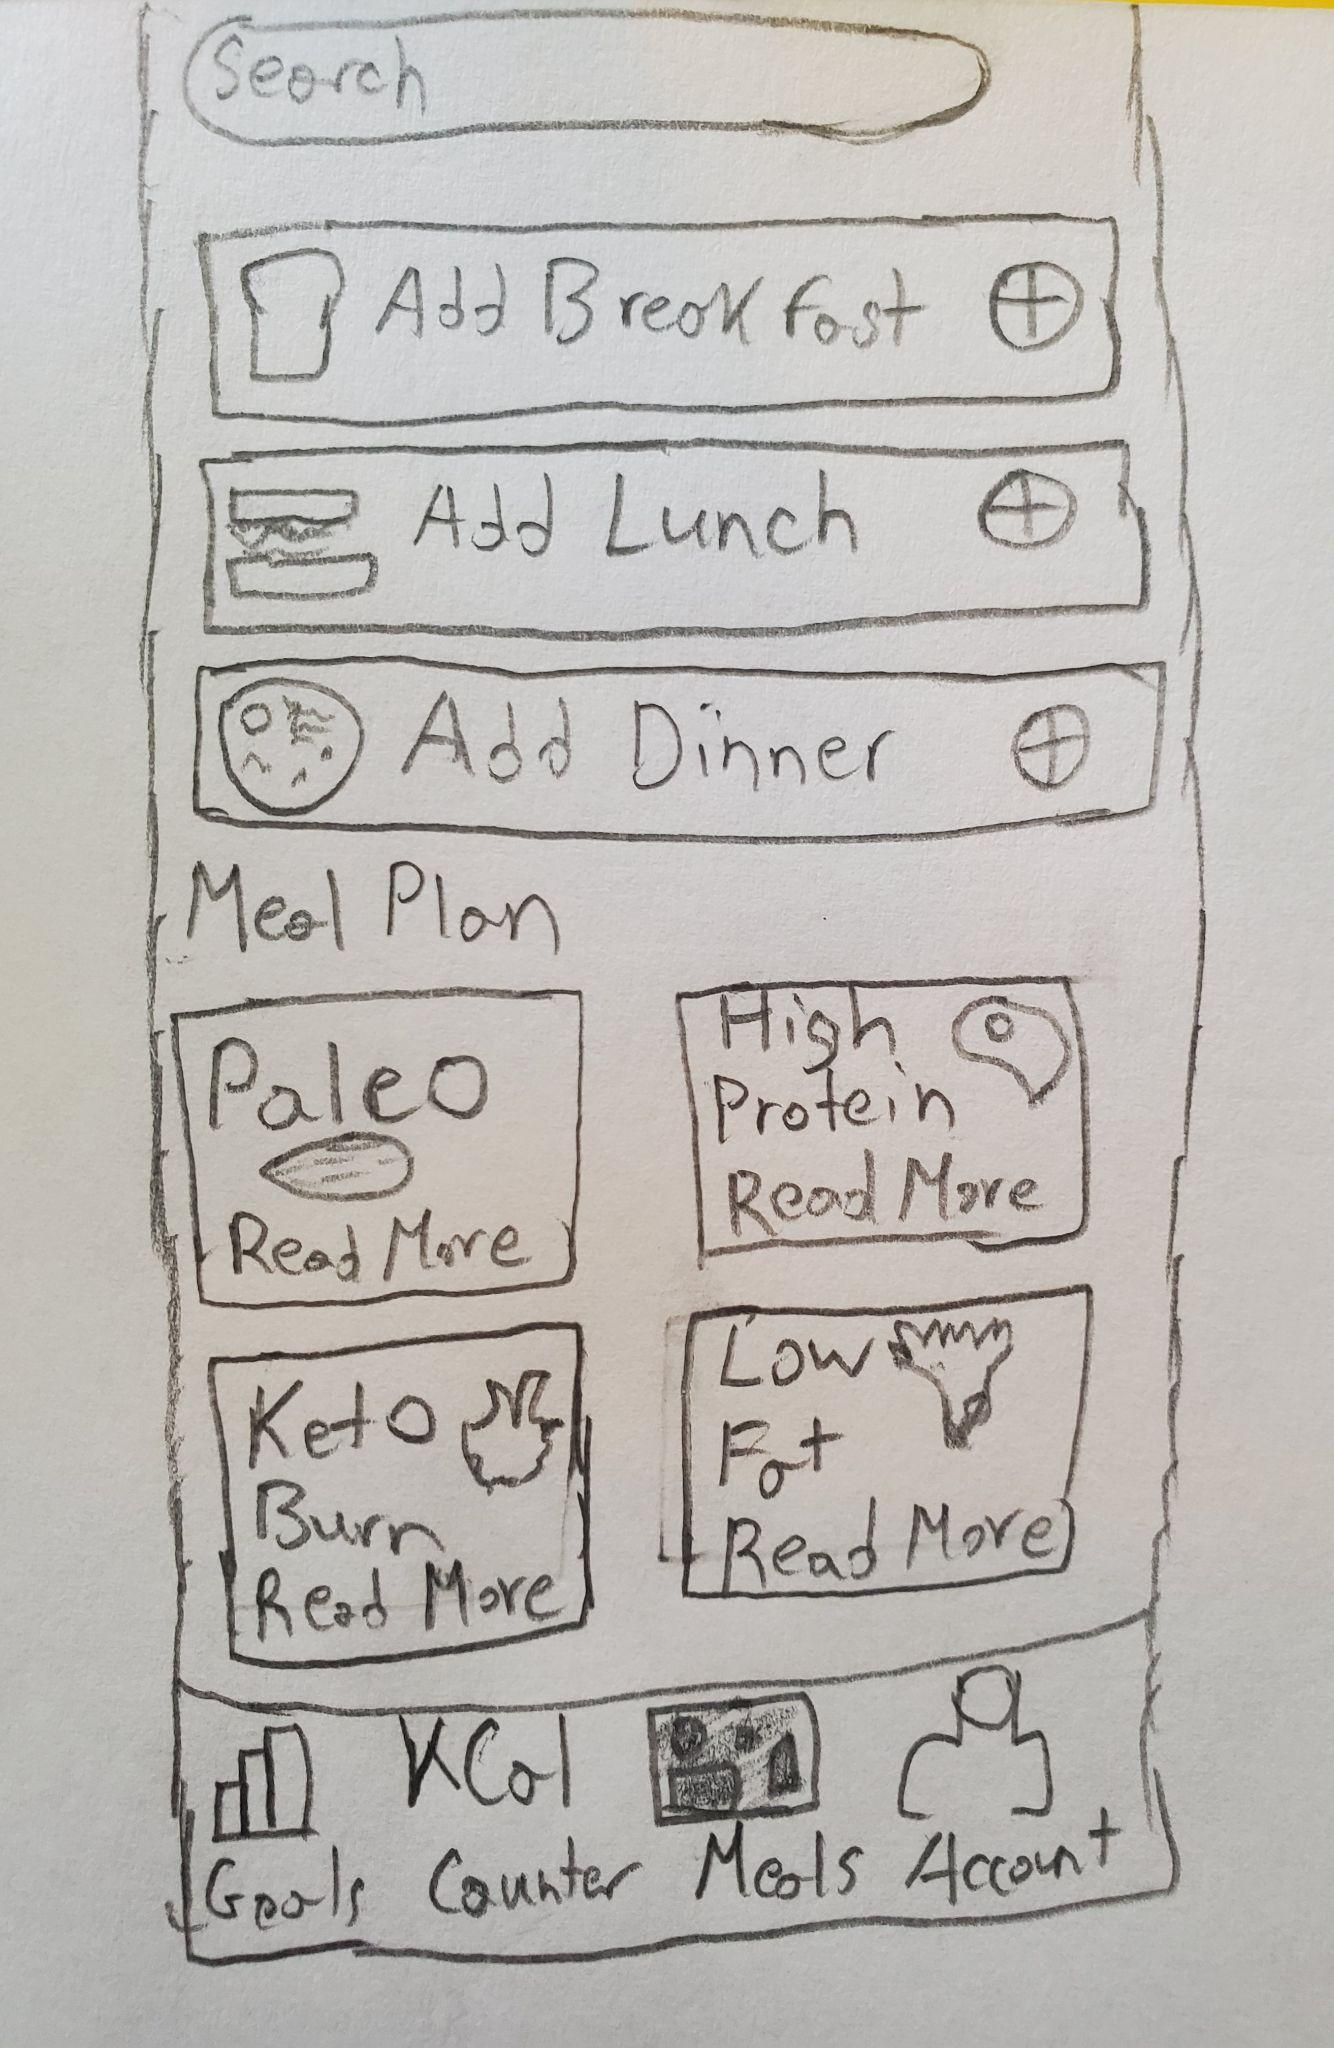 Search
Add Breakfast
Add Lunch
Add Dinner
Meal Plan
Paleo
Read More
High
Protein
Read More
Keto
Burn
Read More
Low
Fat
Read More
KCal
Goals Counter Meals Account